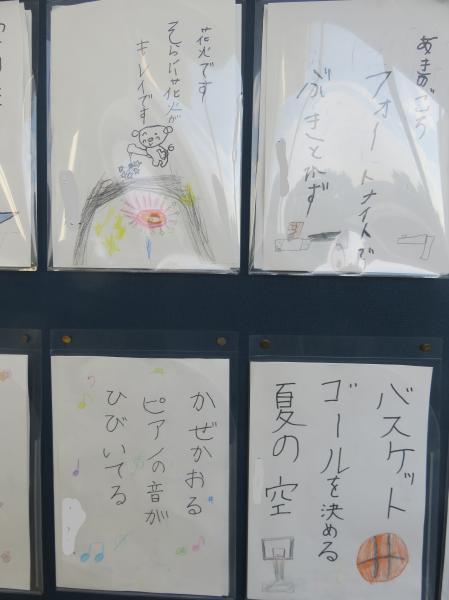 花火です
そらに花火が
キレイです
あきのごろ
フォートナイトで
ぶきとれず
かぜかおる
ピアノの音が
ひびいてる
バスケット
ゴールを決める
夏の空